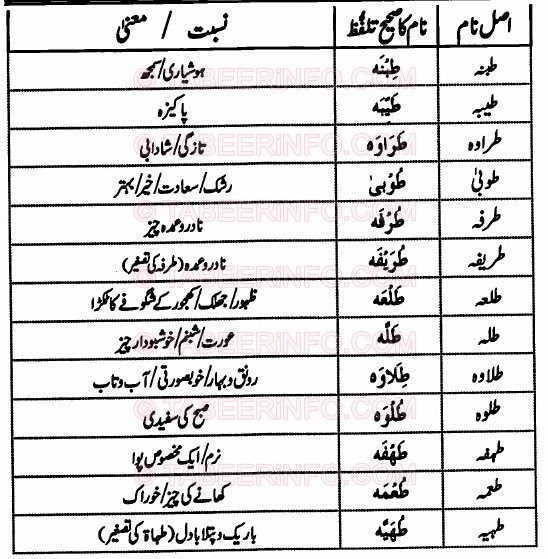 اصل نام	نام کا صحیح تلفُّظ	نسبت / معنٰی
طبنہ	طِبْنَه	ہوشیاری/سمجھ
طیبہ	طَیِّبَه	پاکیزہ
طراوہ	طَرَاوَه	تازگی/شادابی
طوبیٰ	طُوْبیٰ	رشک/سعادت/خیر/بہتر
طرفہ	طُرْفَه	نادر و عمدہ چیز
طریفہ	طُرَیْفَه	نادر و عمدہ (طرفہ کی تصغیر)
طلعہ	طَلْعَه	ظہور/جھلک/کھجور کے شگوفے کا ٹکڑا
طلہ	طَلَّه	عورت/شبنم/خوشبودار چیز
طلاوہ	طِلَاوَه	رونق و بہار/خوبصورتی/آب و تاب
طلوہ	طُلْوَه	صبح کی سفیدی
طہفہ	طَهْفَه	نرم/ایک مخصوص پودا
طعمہ	طُعْمَه	کھانے کی چیز/خوراک
طہیہ	طُهَیَّه	باریک و پتلا بادل (طہاۃ کی تصغیر)
© TABEERINFO.COM
© TABEERINFO.COM
© TABEERINFO.COM
© TABEERINFO.COM
© TABEERINFO.COM
© TABEERINFO.COM
© TABEERINFO.COM